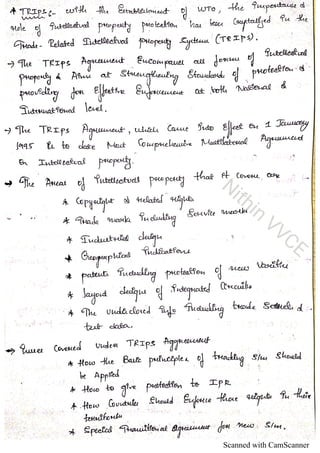 * TRIPs :- with the Establishment of WTO, the Importance &
role of Intellectual property protection has been Crystallized in the
Trade-Related Intellectual property System (TRIPS).
→ The TRIPs Agreement Encompasses all forms of Intellectual
property & Aims at Strengthening Standards of protection &
providing for Effective Enforcement at both National &
International level.
→ The TRIPs Agreement, which Came Into Effect on 1 January
1995 is to date Most Comprehensive Multilateral Agreement
on Intellectual property.
→ The Areas of Intellectual property that It Covers are
* Copyright & Related rights
* Trade marks Including Service marks
* Industrial design
* Geographical Indications
* patents Including protection of new Varieties
* layout designs of Integrated Circuits
* The undisclosed Info Including trade Secrets &
test data.
→ Issues Covered under TRIPs Aggreement
* How the Basic principles of trading s/m Should
be Applied
* How to give protection to IPR
* How Countries Should Enforce those rights In their
* Special Transitional agreement for new s/m.
Nithin VVCE
Scanned with CamScanner